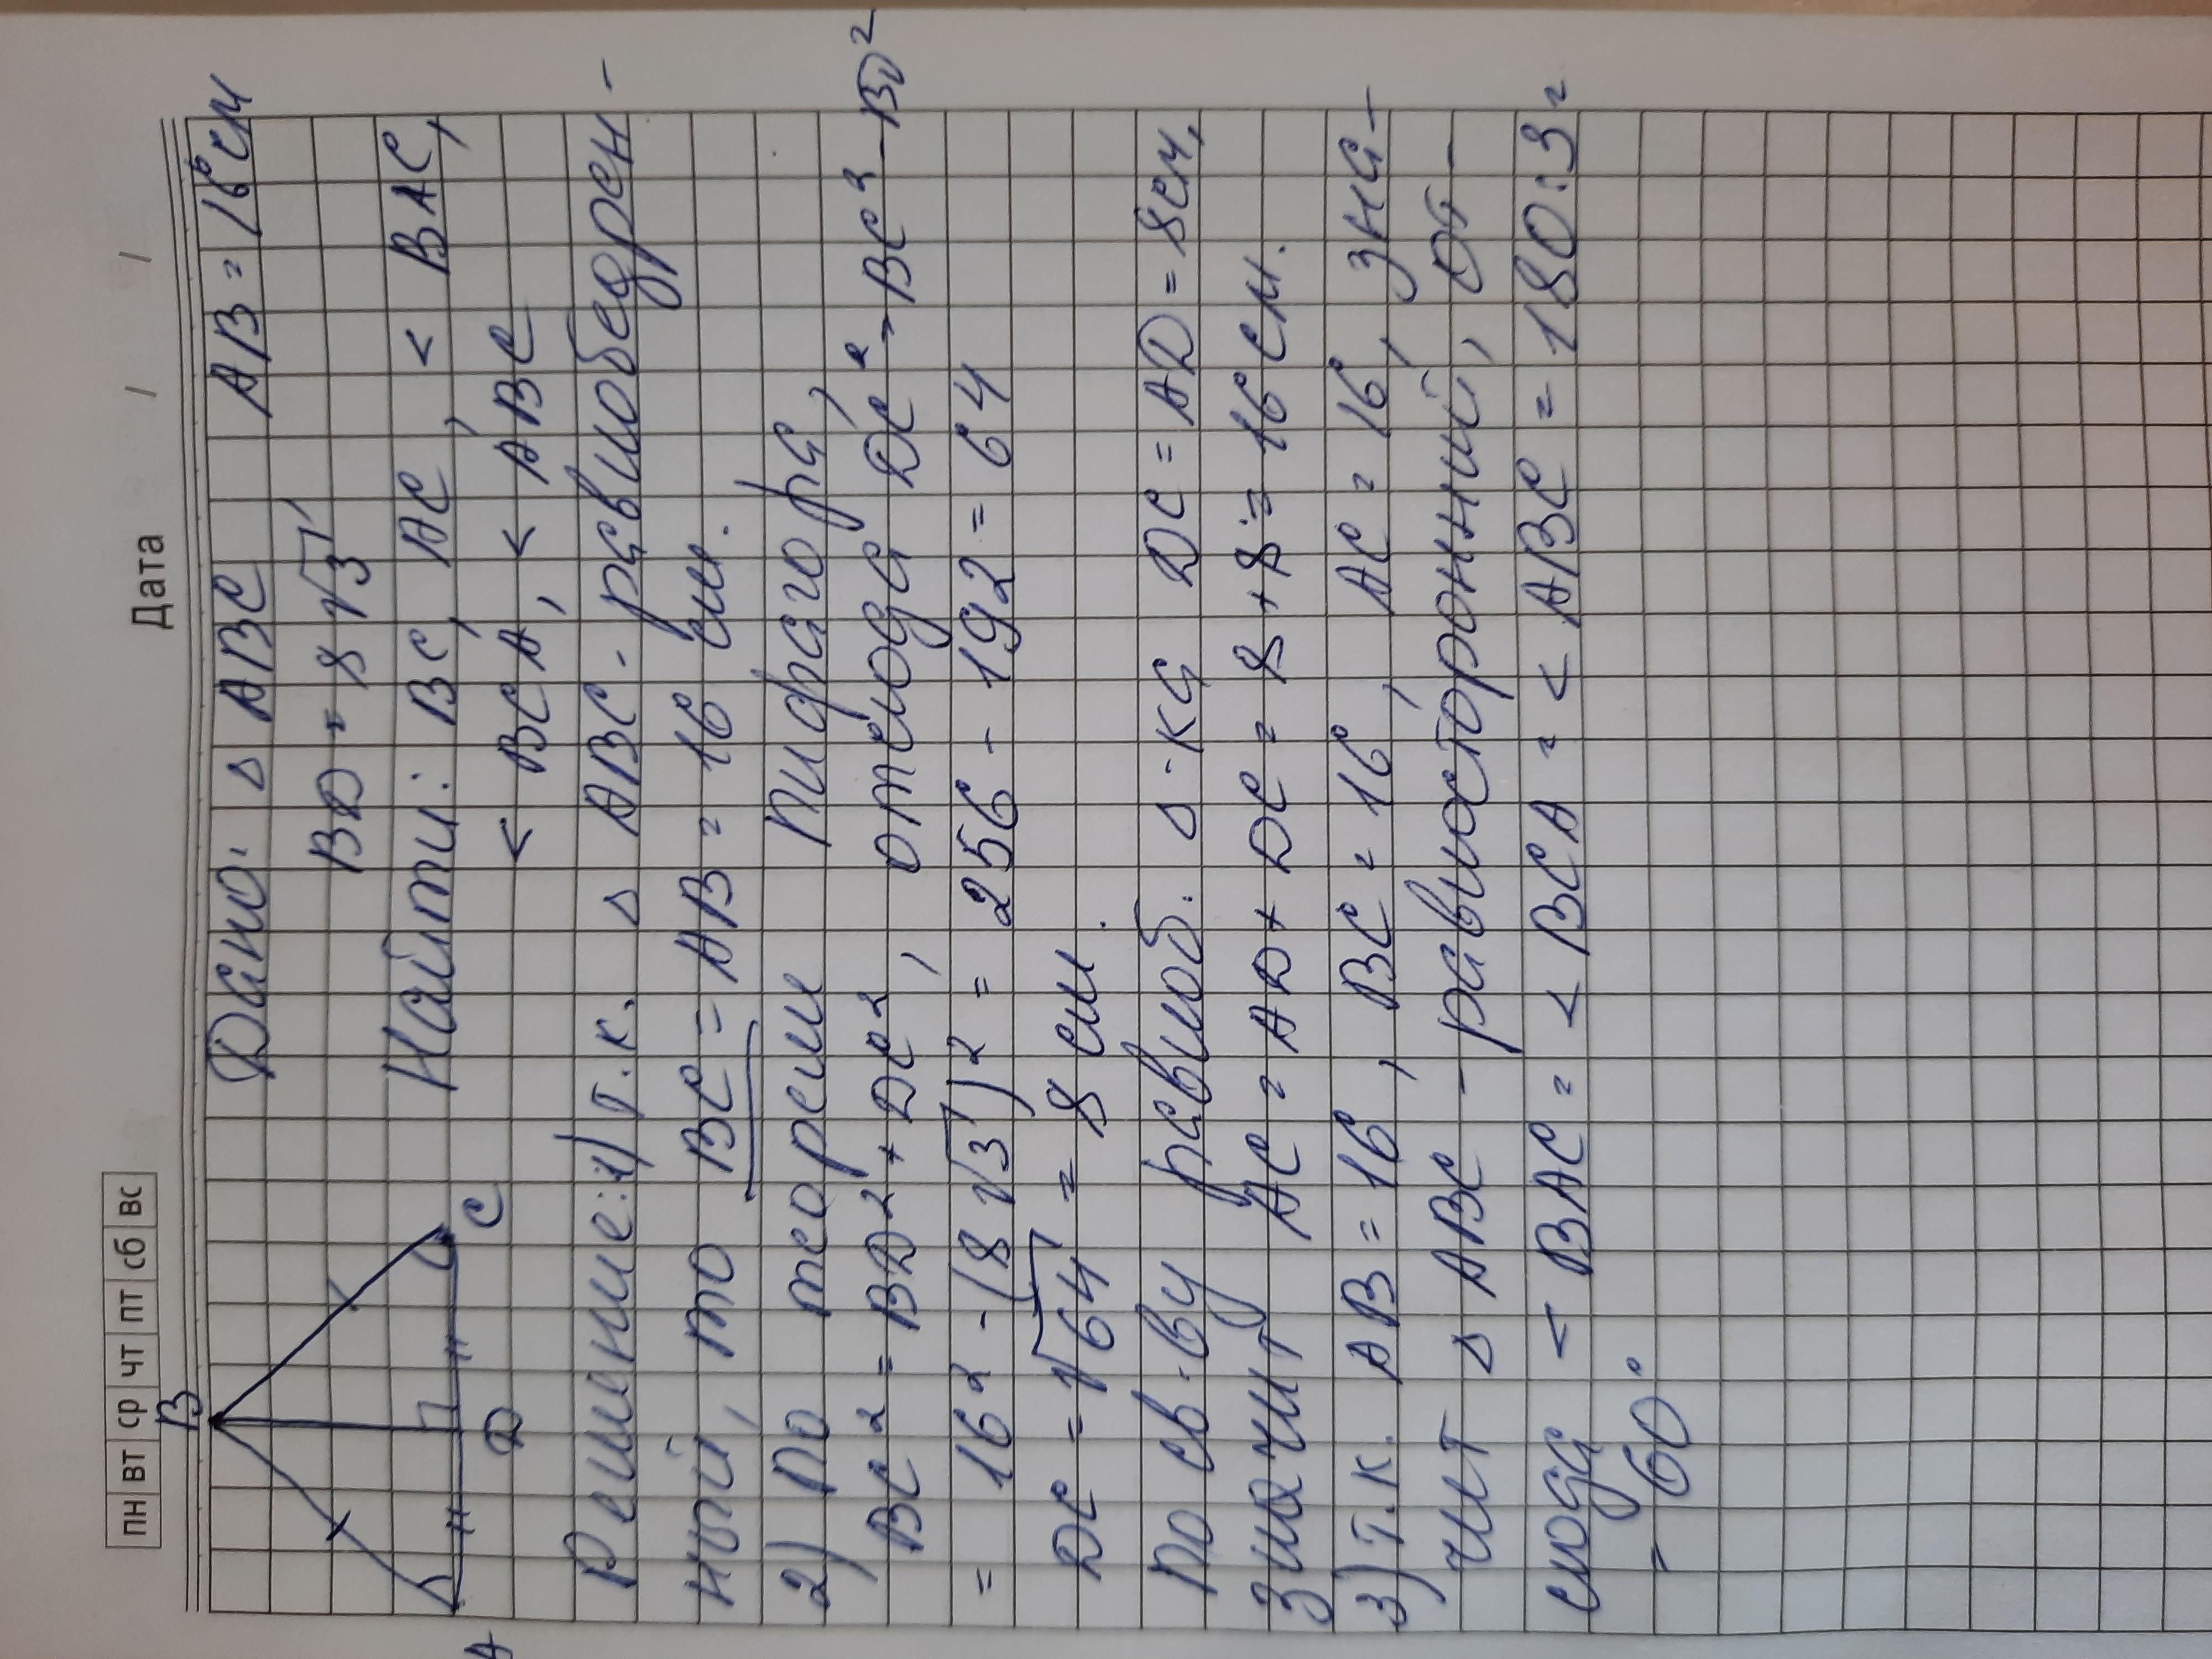 пн вт ср чт пт сб вс Дата / /
B
A
D
C
Дано: Δ ABC AB = 16 см
BD = 8√3
Найти: BC, AC, < BAC,
< BCA, < ABC
Решение: 1) Т.к. Δ ABC - равнобедрен-
ный, то BC = AB = 16 см.
2) По теореме Пифагора,
BC² = BD² + DC², отсюда DC² = BC² - BD²
= 16² - (8√3)² = 256 - 192 = 64
DC = √64 = 8 см.
По св-ву равноб. Δ-ка DC = AD = 8см,
Значит AC = AD + DC = 8 + 8 = 16 см.
3) Т.к. AB = 16, BC = 16, AC = 16, зна-
чит Δ ABC - равносторонний, от-
сюда < BAC = < BCA = < ABC = 180:3 =
= 60°